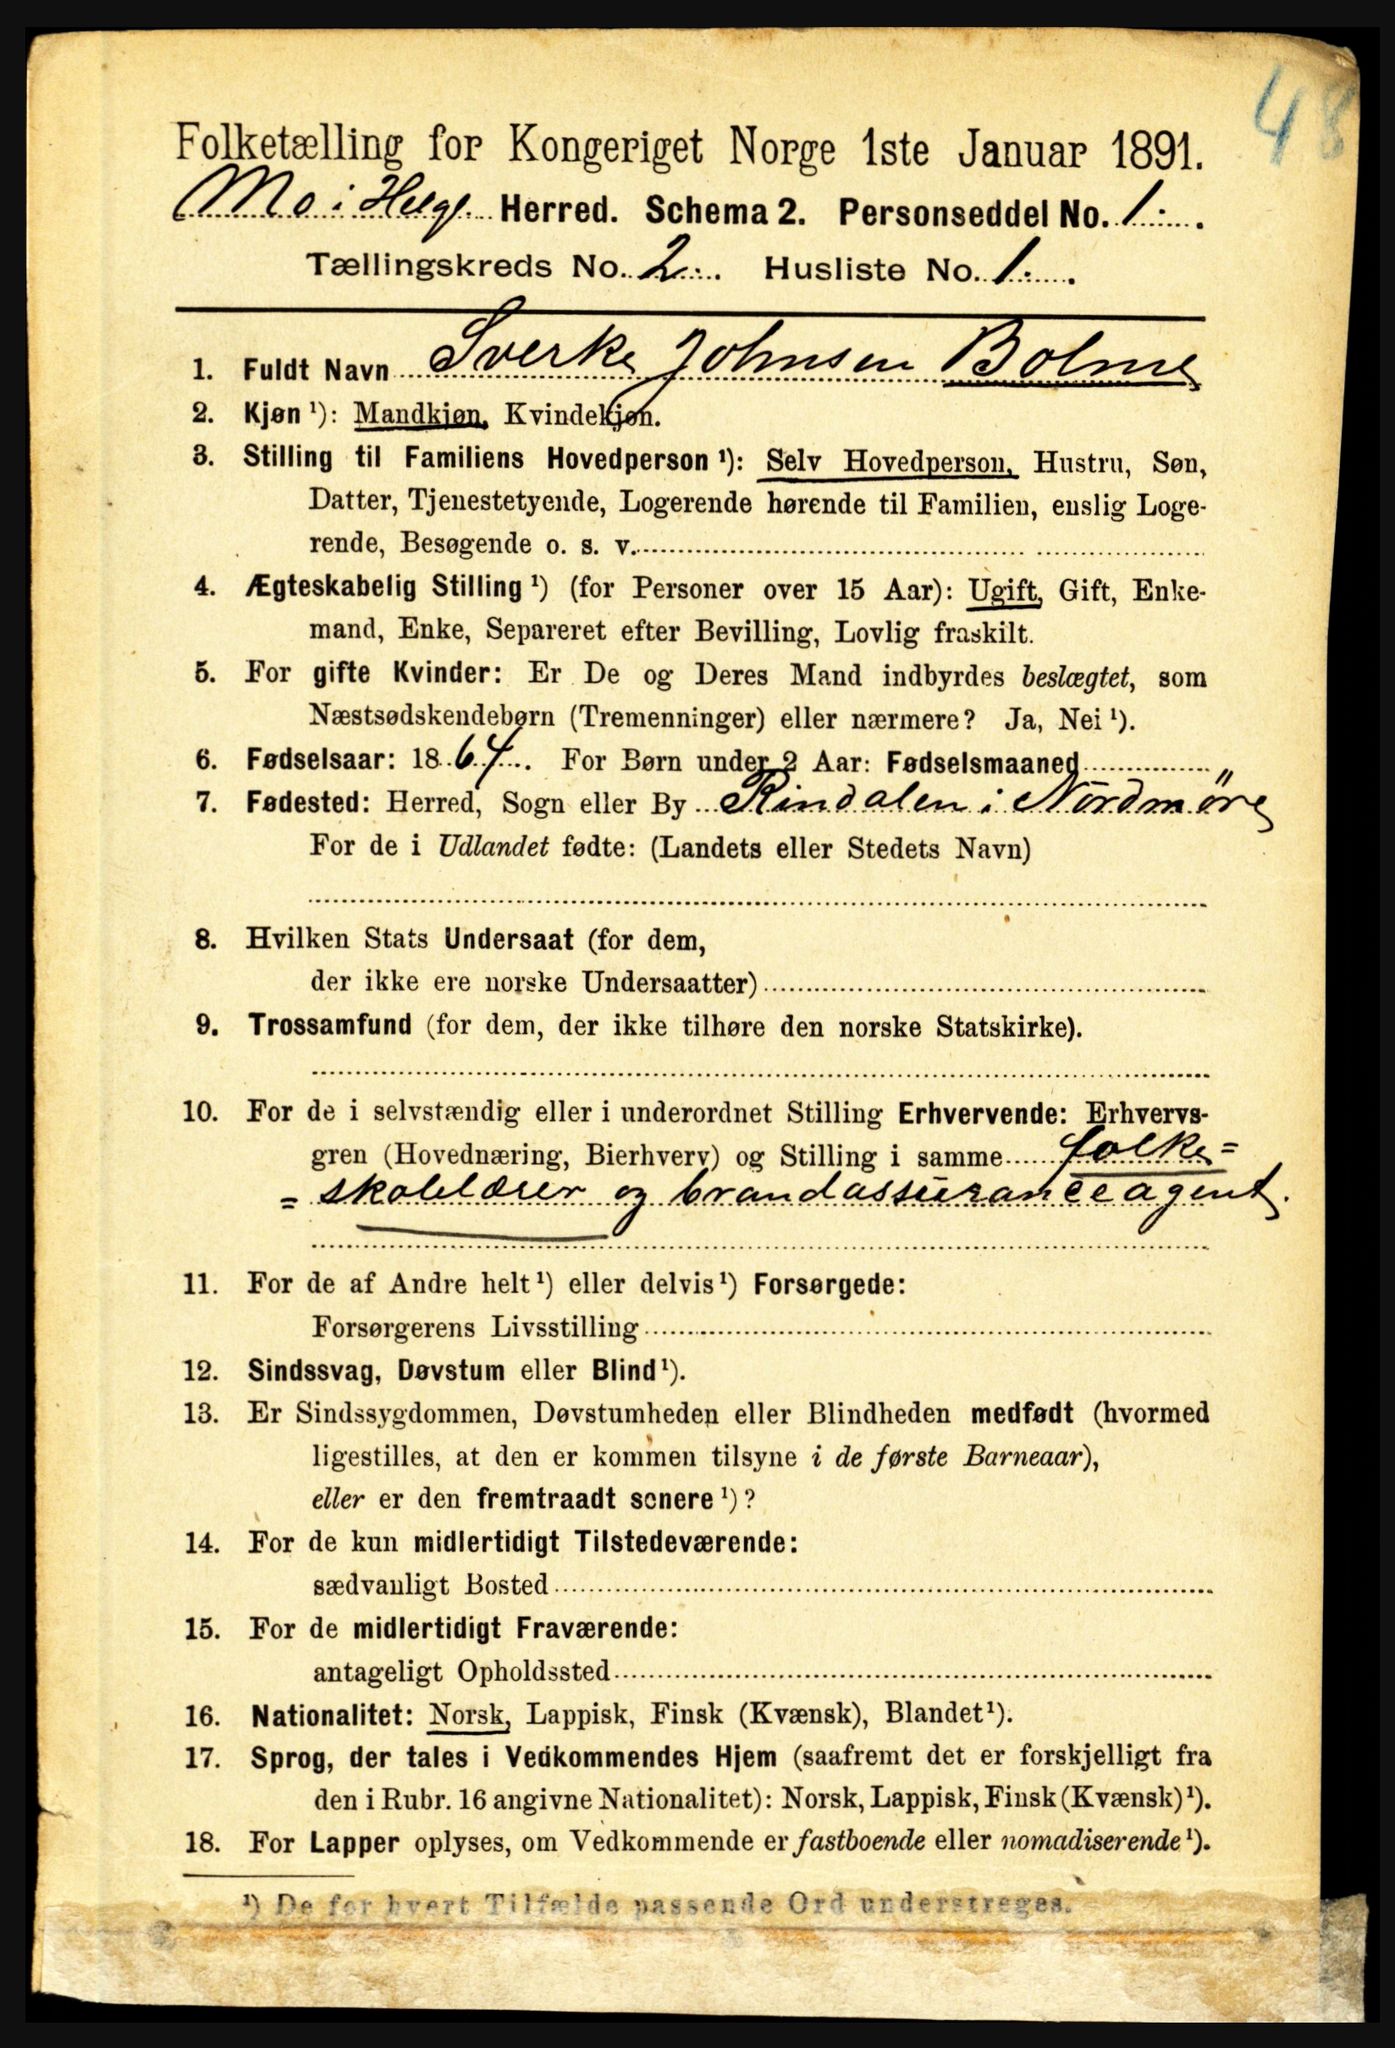 48
Folketælling for Kongeriget Norge 1ste Januar 1891.
Mo i Helgl. Herred. Schema 2. Personseddel No. 1.
Tællingskreds No. 2. Husliste No. 1.
1. Fuldt Navn Sverke Johnsen Bolme
2. Kjøn ¹): Mandkjøn, Kvindekjøn.
3. Stilling til Familiens Hovedperson ¹): Selv Hovedperson, Hustru, Søn,
Datter, Tjenestetyende, Logerende hørende til Familien, enslig Loge-
rende, Besøgende o. s. v.
4. Ægteskabelig Stilling ¹) (for Personer over 15 Aar): Ugift, Gift, Enke-
mand, Enke, Separeret efter Bevilling, Lovlig fraskilt.
5. For gifte Kvinder: Er De og Deres Mand indbyrdes beslægtet, som
Næstsødskendebørn (Tremenninger) eller nærmere? Ja, Nei ¹).
6. Fødselsaar: 1864. For Børn under 2 Aar: Fødselsmaaned
7. Fødested: Herred, Sogn eller By Rindalen i Nordmöre
For de i Udlandet fødte: (Landets eller Stedets Navn)
8. Hvilken Stats Undersaat (for dem,
der ikke ere norske Undersaatter)
9. Trossamfund (for dem, der ikke tilhøre den norske Statskirke).
10. For de i selvstændig eller i underordnet Stilling Erhvervende: Erhvervs-
gren (Hovednæring, Bierhverv) og Stilling i samme folke=
=skolelærer og brandassuranceagent.
11. For de af Andre helt ¹) eller delvis ¹) Forsørgede:
Forsørgerens Livsstilling
12. Sindssvag, Døvstum eller Blind ¹).
13. Er Sindssygdommen, Døvstumheden eller Blindheden medfødt (hvormed
ligestilles, at den er kommen tilsyne i de første Barneaar),
eller er den fremtraadt senere ¹)?
14. For de kun midlertidigt Tilstedeværende:
sædvanligt Bosted
15. For de midlertidigt Fraværende:
antageligt Opholdssted
16. Nationalitet: Norsk, Lappisk, Finsk (Kvænsk), Blandet ¹).
17. Sprog, der tales i Vedkommendes Hjem (saafremt det er forskjelligt fra
den i Rubr. 16 angivne Nationalitet): Norsk, Lappisk, Finsk (Kvænsk) ¹).
18. For Lapper oplyses, om Vedkommende er fastboende eller nomadiserende ¹).
¹) De for hvert Tilfælde passende Ord understreges.